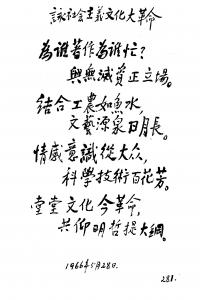 詠社会主義文化大革命
為誰著作為誰忙？
興無滅資正立場。
結合工農如魚水，
文藝源泉日月長。
情感意識從大众，
科學技術百花芳。
堂堂文化今革命，
共仰明哲提大綱。
1966年5月28日.
281.